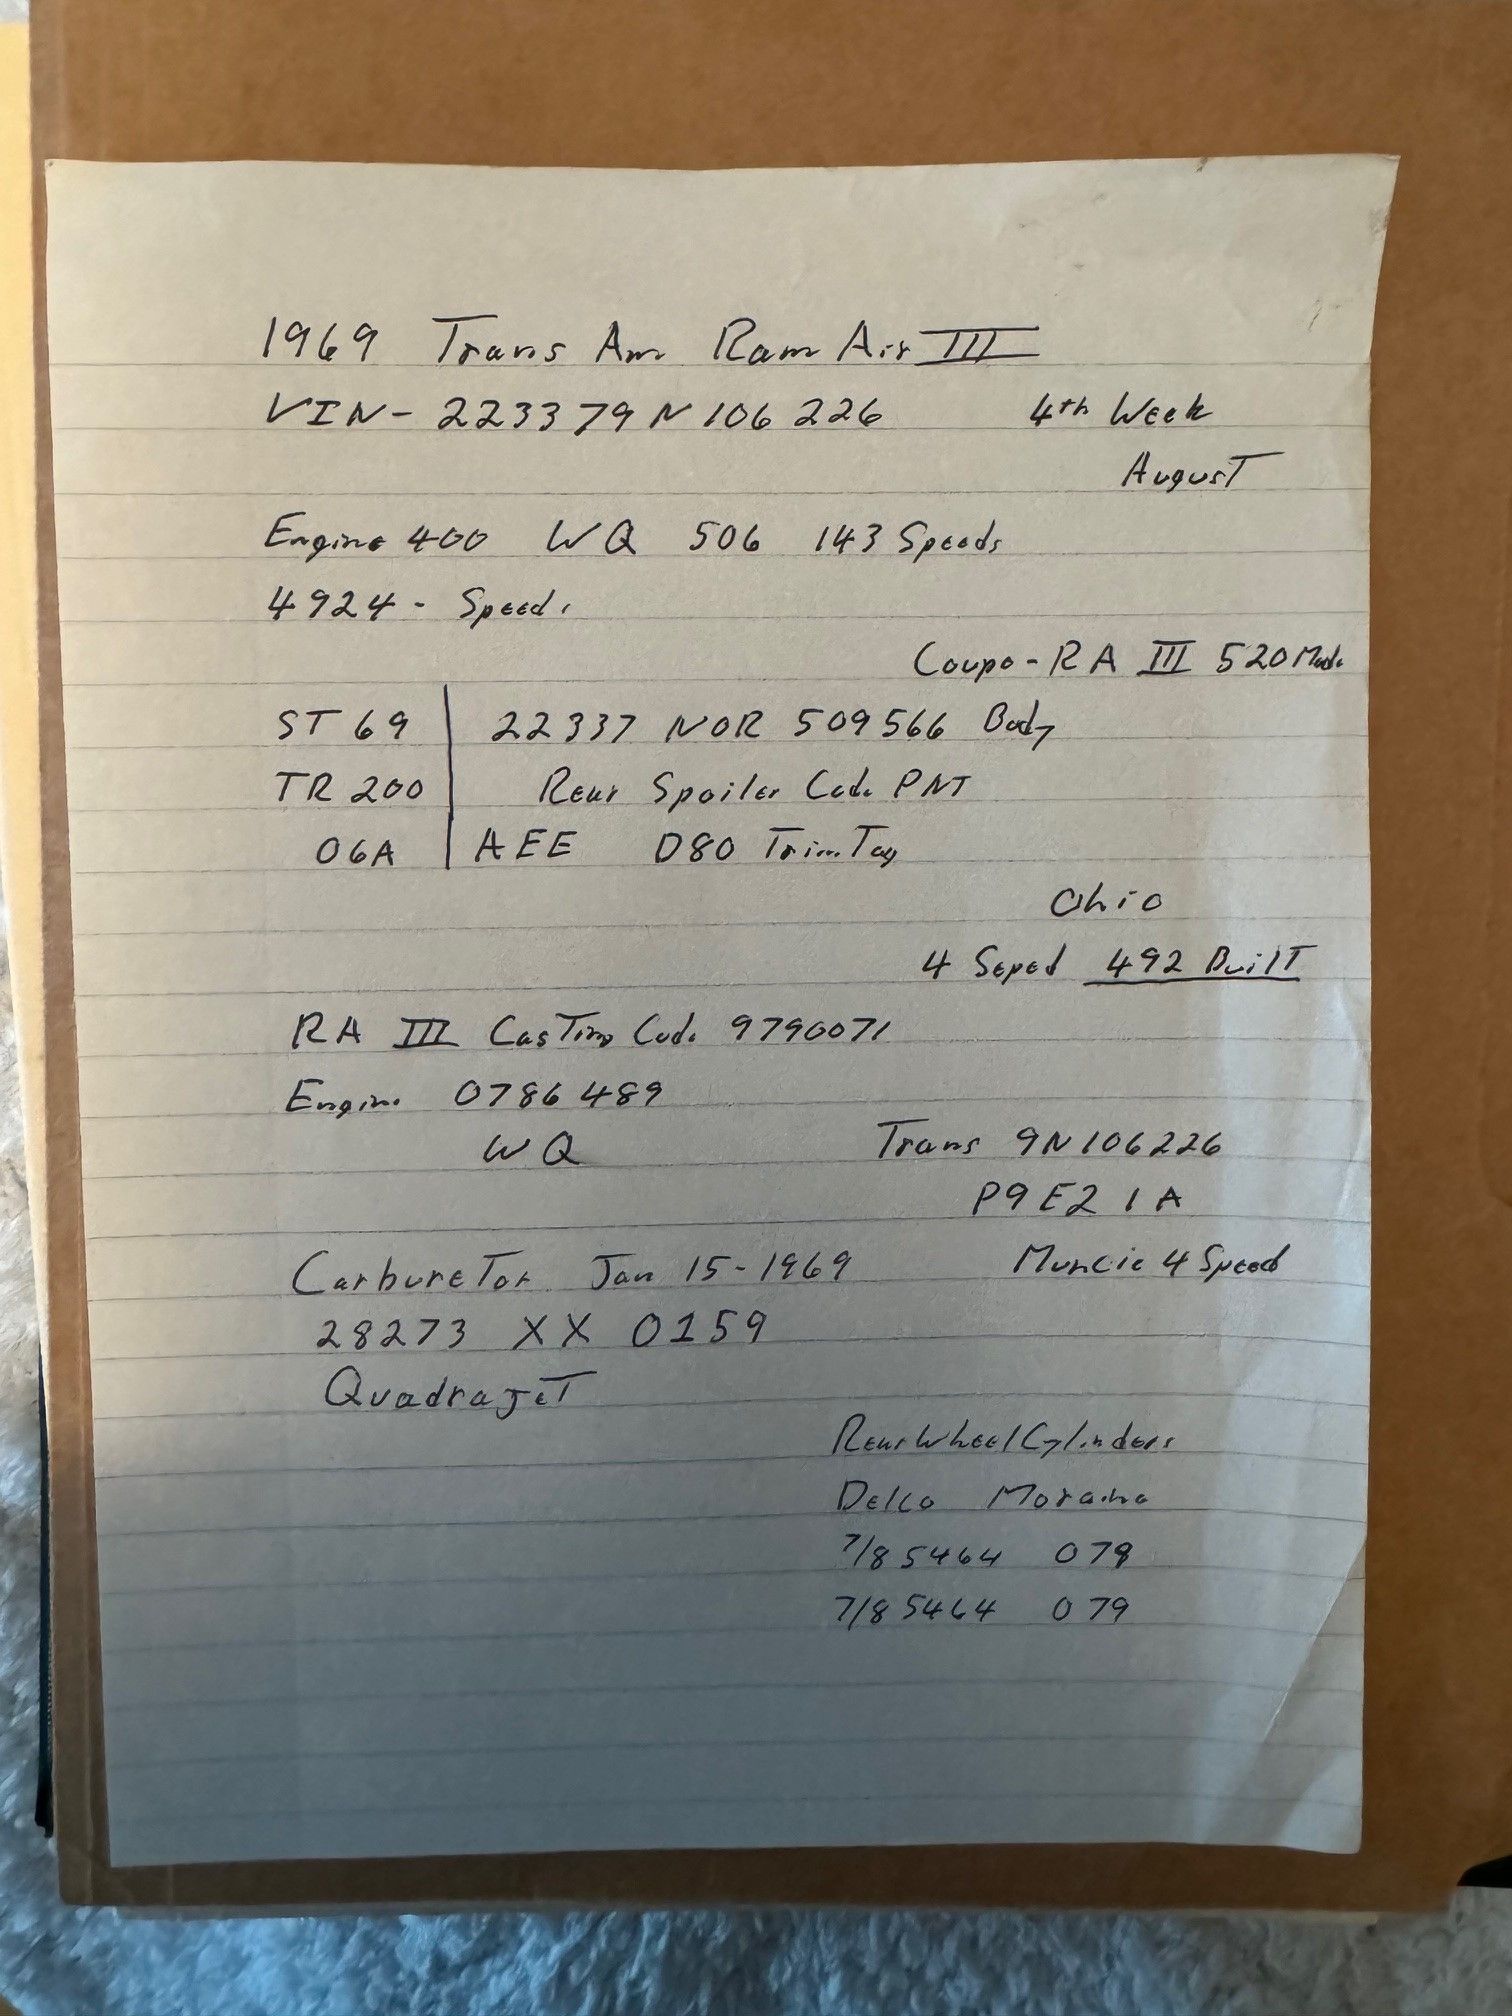 1969 Trans Am Ram Air III
VIN- 223379N106226 4th Week
August
Engine 400 WQ 506 143 Speeds
4924 - Speed.
Coupo - RA III 520 Made
ST 69 22337 NOR 509566 Body
TR 200 Rear Spoiler Code PNT
06A AEE D80 Trim Tag
Ohio
4 Seped 492 Built
RA III Casting Code 9790071
Engine 0786489
WQ Trans 9N106226
P9E21A
Carburetor Jan 15-1969 Muncie 4 Speed
28273 XX 0159
QuadrajeT
Rear Wheel Cylinders
Delco Moraine
7/8 5464 079
7/8 5464 079